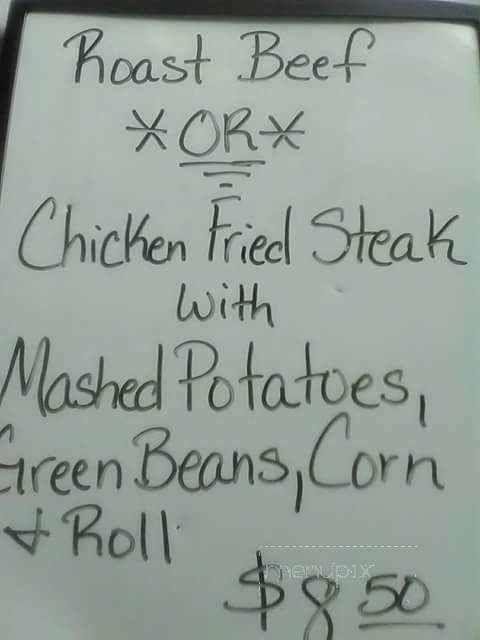 Roast Beef
*OR*
Chicken Fried Steak
with
Mashed Potatoes,
Green Beans, Corn
& Roll
menupix
$8 50